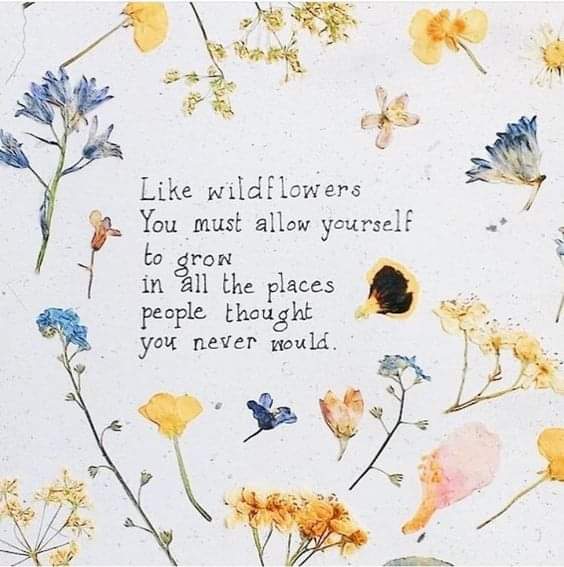 Like wildflowers
You must allow yourself
to grow
in all the places
people thought
you never would.